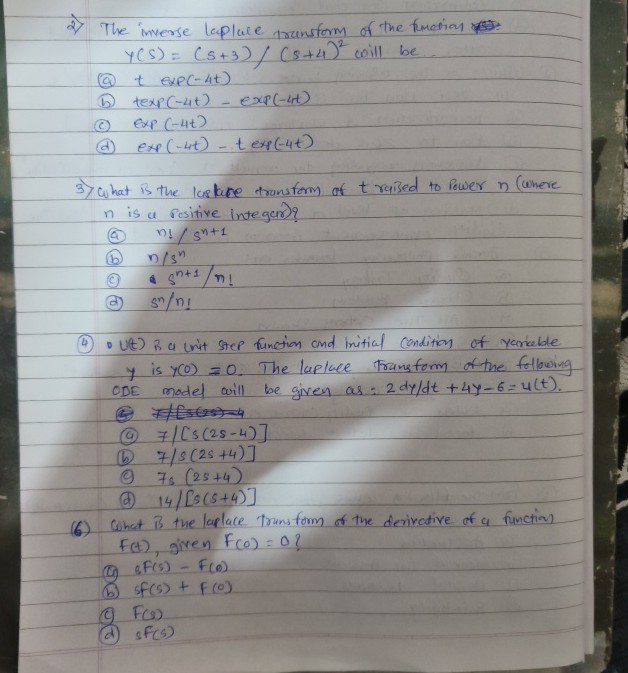 2) The inverse laplace transform of the function
Y(S) = (S+3) / (S+4)² will be
(a) t exp(-4t)
(b) texp(-4t) - exp(-4t)
(c) exp(-4t)
(d) exp(-4t) - t exp(-4t)
3) What is the laplace transform of t raised to Power n (where
n is a Positive integer)?
(a) n! / sⁿ⁺¹
(b) n/sⁿ
(c) sⁿ⁺¹/n!
(d) sⁿ/n!
(4) • U(t) is a unit step function and initial condition of variable
y is y(0) = 0. The laplace Transform of the following
ODE model will be given as: 2 dy/dt + 4y - 6 = u(t).
(a) 7/[S(2S-4)]
(b) 7/S(2S+4)]
(c) 7s (2S+4)
(d) 14/[S(S+4)]
(6) What is the laplace Transform of the derivative of a function
F(t), given F(0) = 0?
(a) SF(S) - F(0)
(b) SF(S) + F(0)
(c) F(S)
(d) SF(S)